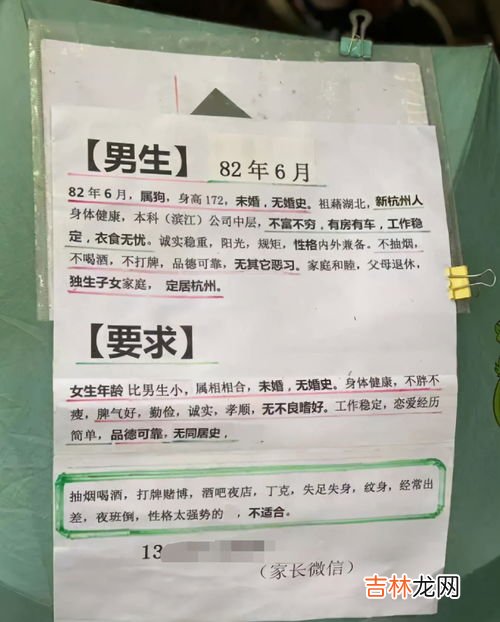 【男生】 82年6月
82年6月，属狗，身高172，未婚，无婚史。祖籍湖北，新杭州人
身体健康，本科（滨江）公司中层，不富不穷，有房有车，工作稳
定，衣食无忧。诚实稳重，阳光，规矩，性格内外兼备。不抽烟，
不喝酒，不打牌，品德可靠，无其它恶习。家庭和睦，父母退休，
独生子女家庭， 定居杭州。
【要求】
女生年龄 比男生小，属相相合，未婚，无婚史。身体健康，不胖不
瘦，脾气好，勤俭，诚实，孝顺，无不良嗜好。工作稳定，恋爱经历
简单，品德可靠，无同居史，
抽烟喝酒，打牌赌博，酒吧夜店，丁克，失足失身，纹身，经常出
差，夜班倒，性格太强势的 ，不适合。
13
（家长微信）
吉林龙网